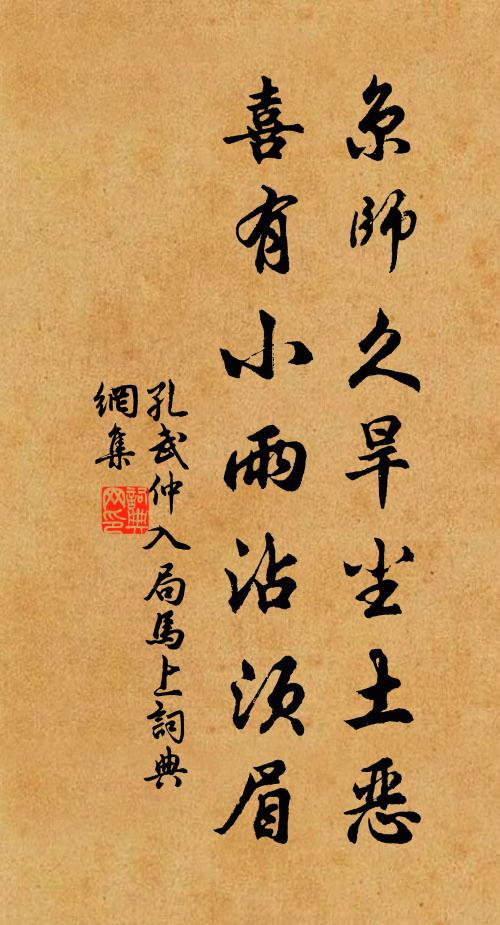 京師久旱尘土恶
喜有小雨沾须眉
孔武仲入局馬上詞典
網集
詞典
网印